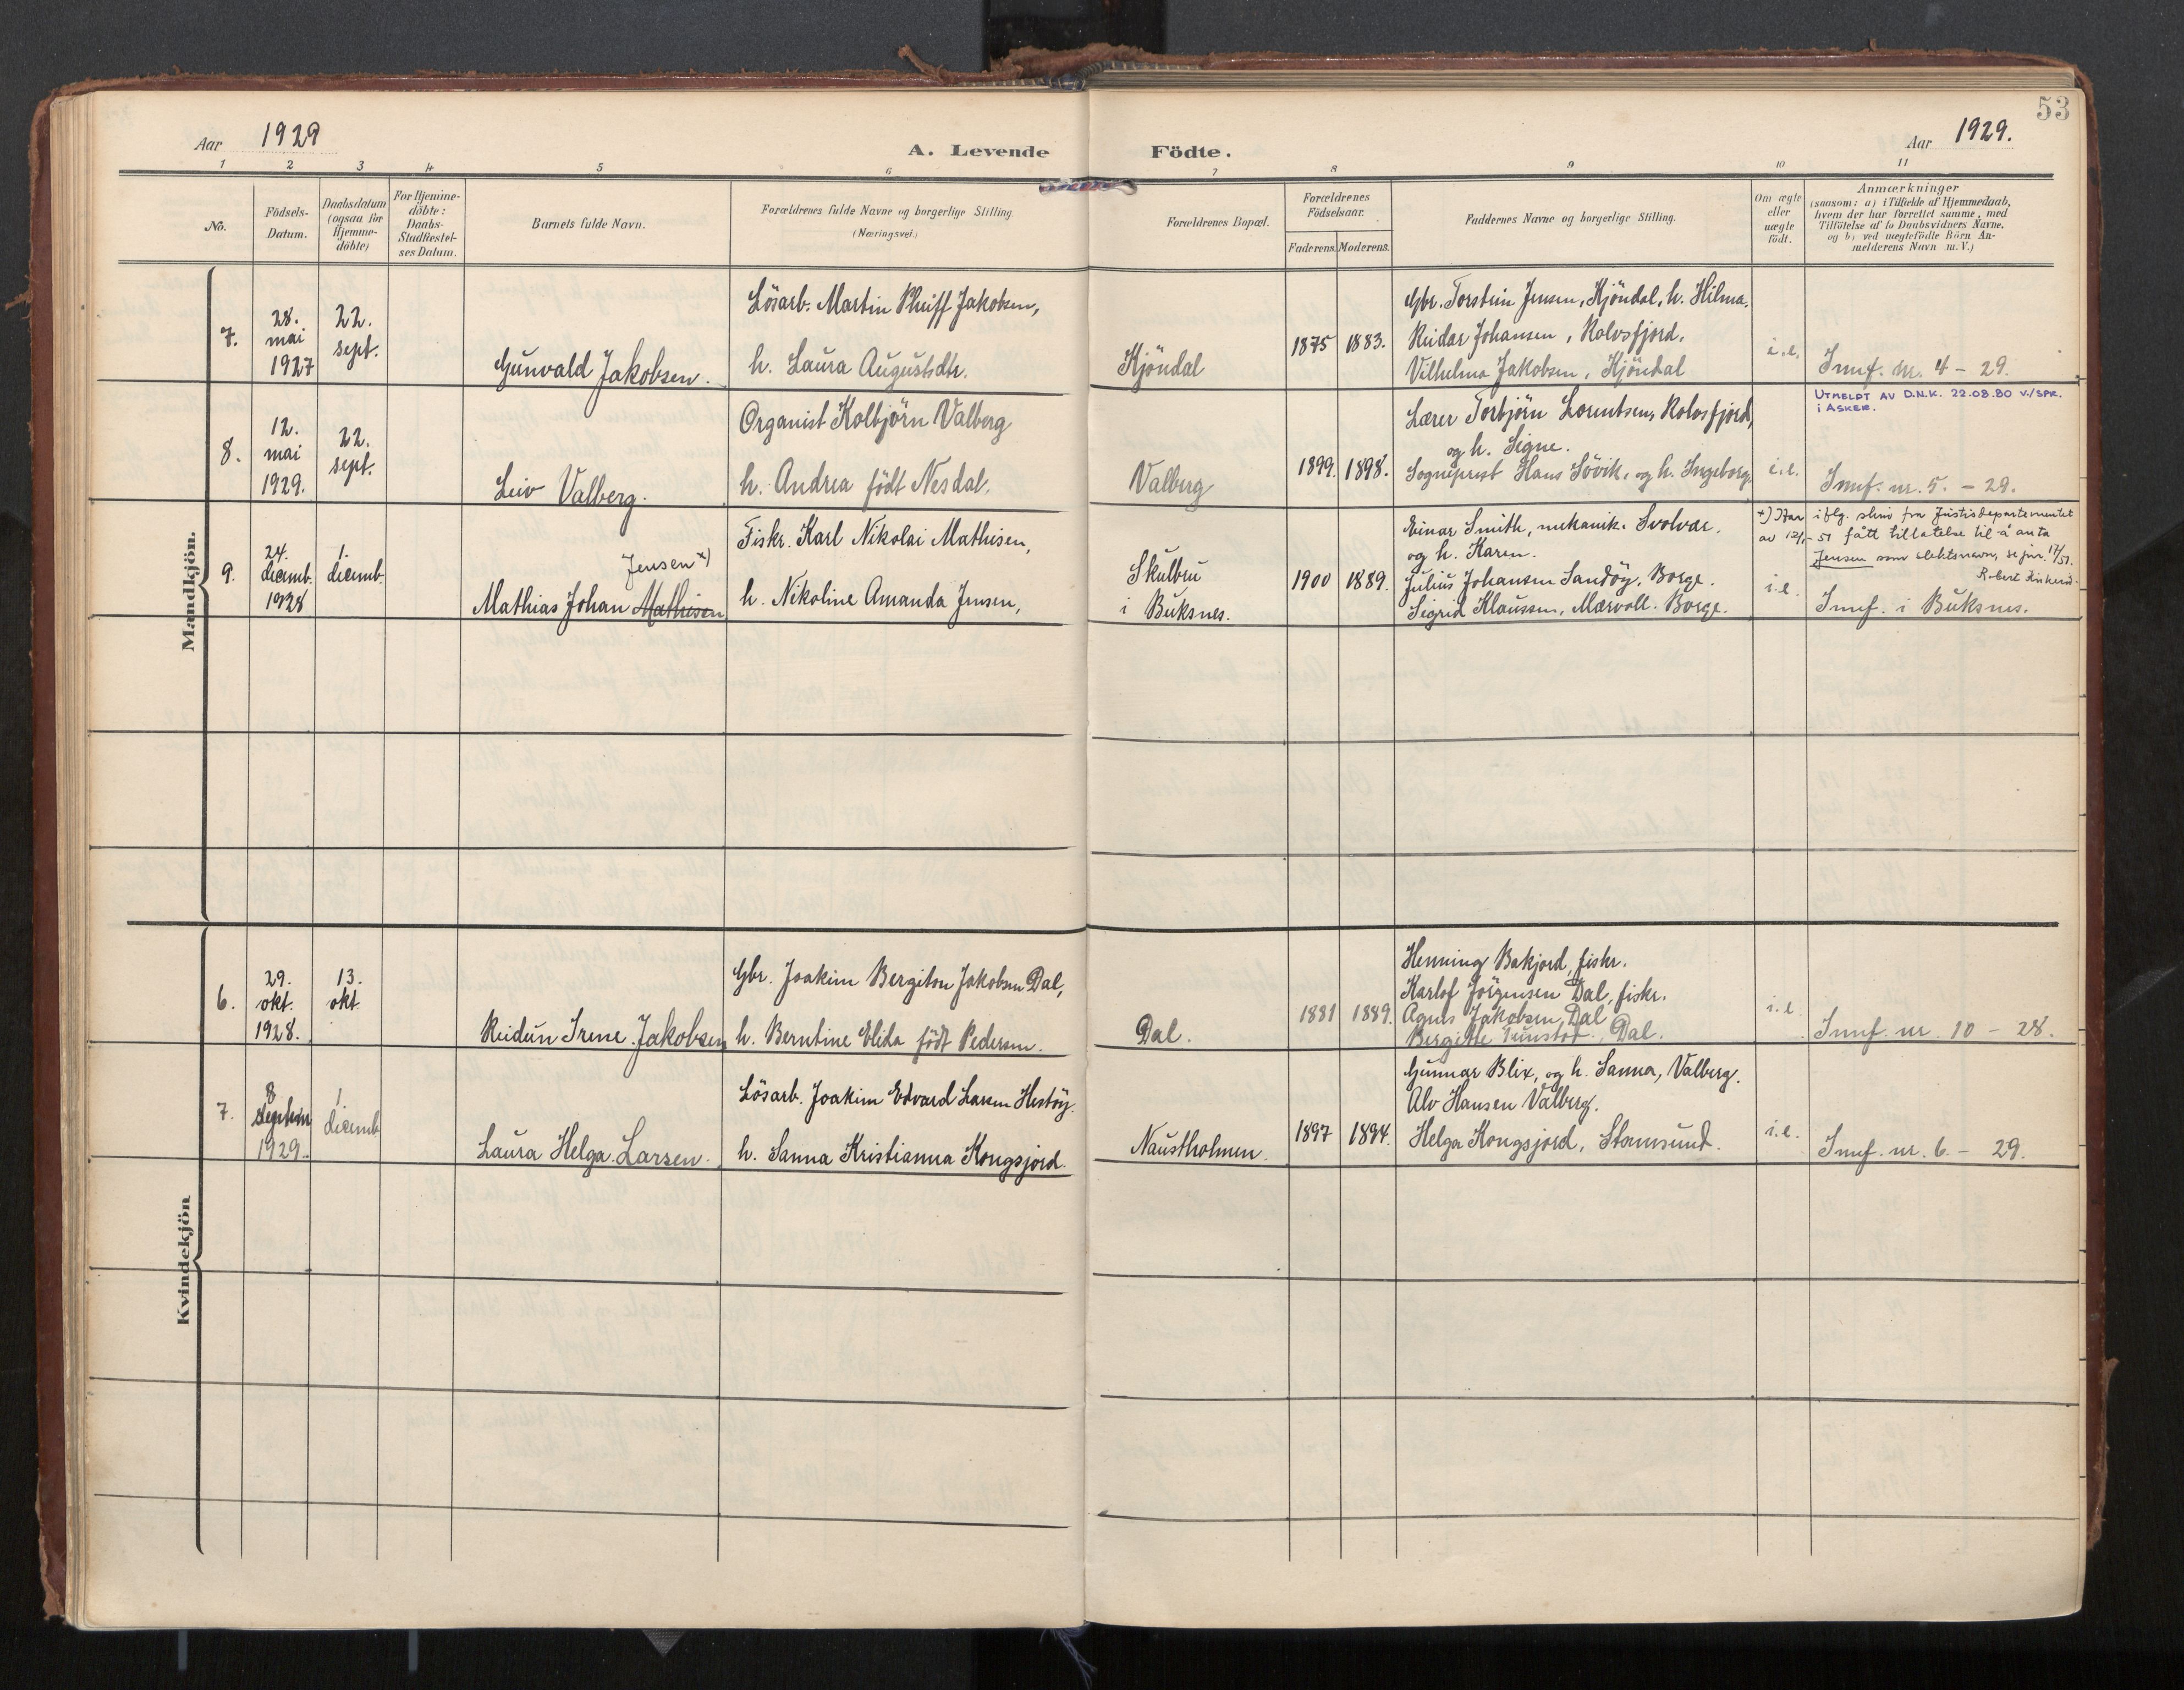 53
Aar 1929
A. Levende Födte.
Aar 1929.
1 2 3 4 5 6 7 8 9 10 11
No.
Födsels-
Datum.
Daabsdatum
(ogsaa for
Hjemme-
döbte)
For Hjemme-
döbte:
Daabs-
Stadfæstel-
ses Datum.
Barnets fulde Navn.
Forældrenes fulde Navne og borgerlige Stilling.
(Næringsvei.)
Forældrenes Bopæl.
Forældrenes
Födselsaar.
Faderens. Moderens.
Faddernes Navne og borgerlige Stilling.
Om ægte
eller
uægte
födt.
Anmærkninger
(saasom: a) i Tilfælde af Hjemmedaab,
hvem der har forrettet samme, med
Tilföielse af to Daabsvidners Navne,
og b) ved uægtefödte Börn An-
melderens Navn m. V.)
Mandkjön.
7.
28.
mai
1927
22.
sept.
Gunvald Jakobsen.
Lösarb. Martin Pheiff Jakobsen,
h. Laura Augustdtr.
Kjöndal
1875 1883.
Gbr. Torstein Jensen, Kjöndal, h. Hilma.
Reidar Johansen, Rolvsfjord.
Vilhelma Jakobsen, Kjöndal
i.e.
Innf. nr. 4 - 29.
8.
12.
mai
1929.
22.
sept.
Leiv Valberg.
Organist Kolbjörn Valberg
h. Andrea födt Nesdal.
Valberg
1899. 1898.
Lærer Torbjörn Lorentsen, Rolvsfjord,
og h. Signe.
Sogneprest Hans Lövik, og h. Ingeborg.
i.e.
UTMELDT AV D.N.K. 22.08.80 V./SPR.
I ASKER.
Innf. nr. 5. - 29.
9.
24.
decemb.
1928
1.
decemb.
Jensen x)
Mathias Johan Mathisen
Fiskr. Karl Nikolai Mathisen,
h. Nikoline Amanda Jensen,
Skulbru
i Buksnes.
1900 1889.
Einar Smith, mekanik. Svolvær.
og h. Karen.
Julius Johansen Sandöy, Borge.
Sigrid Klaussen, Mærvoll. Borge.
i.e.
x) Har iflg. skriv fra Justisdepartementet
av 12/1-51 fått tillatelse til å anta
Jensen som slektsnavn, se jnr. 17/51.
Robert
Innf. i Buksnes.
Kvindekjön
6.
29.
okt.
1928.
13.
okt.
Reidun Irene Jakobsen
Gbr. Joakim Bergiton Jakobsen Dal,
h. Berntine Elida födt Pedersen.
Dal.
1881 1889.
Henning Bakjord, fiskr.
Karlof Jörgensen Dal, fiskr.
Agnes Jakobsen, Dal
Bergitte Dal.
i.e.
Innf nr. 10 - 28.
7.
8
septem
1929.
1.
decemb
Laura Helga Larsen.
Lösarb. Joakim Edvard Larsen Hestöy.
h. Sanna Kristianna Kongsjord.
Naustholmen.
1897 1894.
Gunnar Blix, og h. Sanna, Valberg.
Alv Hansen Valberg.
Helga Kongsjord, Stamsund.
i.e.
Innf. nr. 6. - 29.